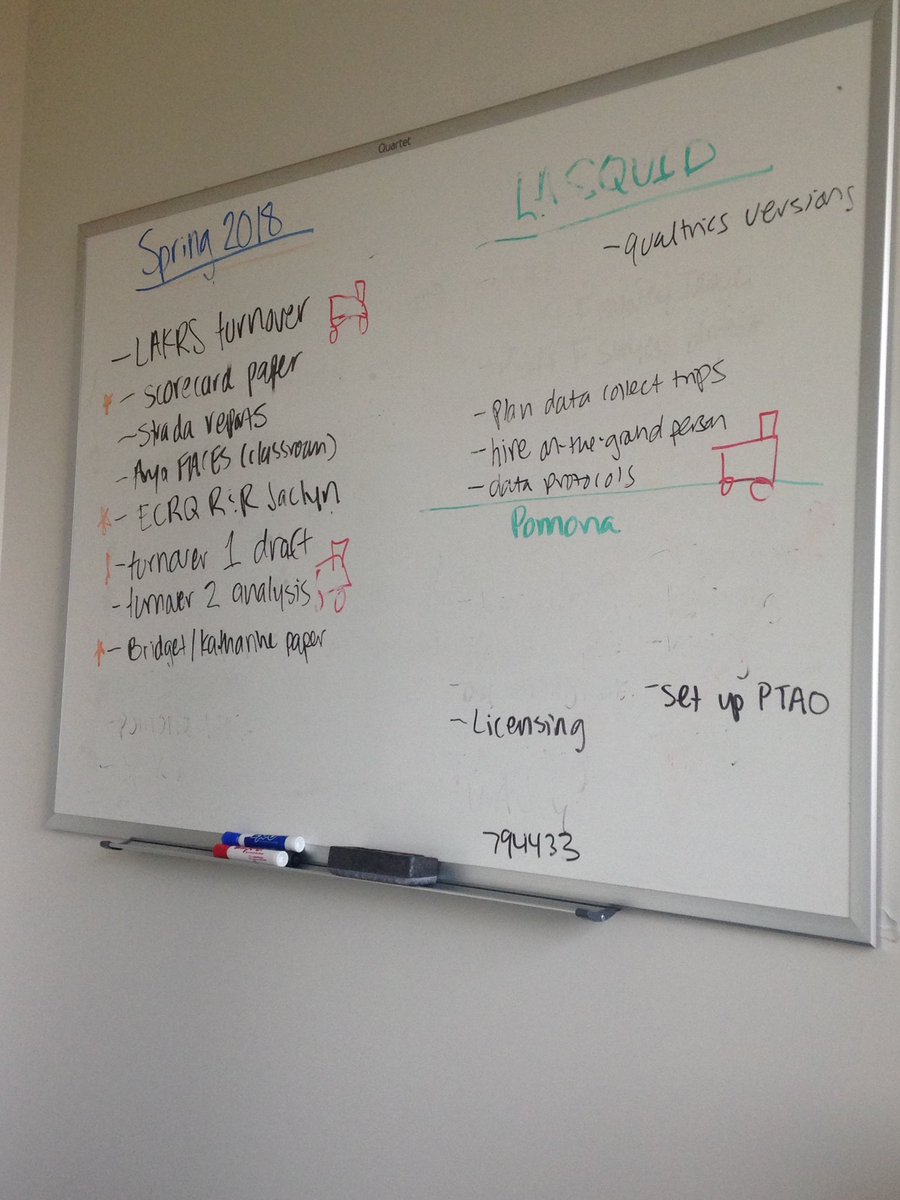 Quartet
Spring 2018
- LAKRS turnover
* - scorecard paper
- Strada reports
- Anya FACES (classroom)
* - ECRQ R&R Jaclyn
- turnover 1 draft
- turnover 2 analysis
* - Bridget/Katharine paper
LA SQUID
- qualtrics versions
- Plan data collect trips
- hire on-the-grand person
- data protocols
Pomona
- set up PTAO
- Licensing
794433